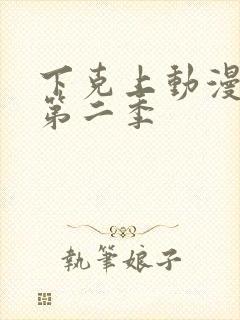 下克上動漫
第二季
執筆娘子